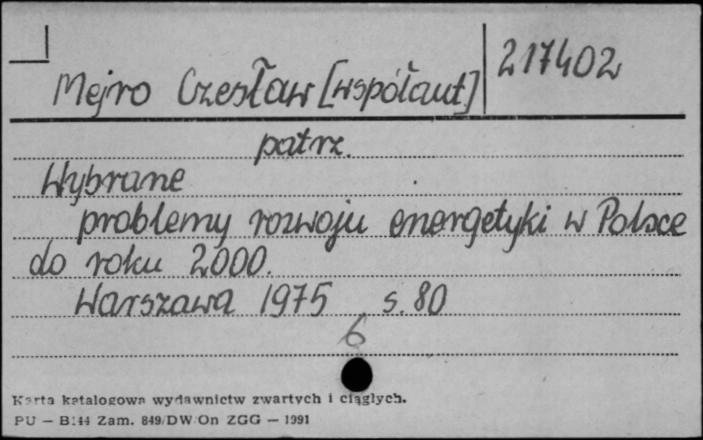 Mejro Czesław [współaut] 217402
patrz.
Wybrane
problemy rozwoju energetyki w Polsce
do roku 2000.
Warszawa 1975 s. 80
6
Karta katalogowa wydawnictw zwartych i ciągłych.
PU — B.44 Zam. 849/DW/On ZGG — 1991